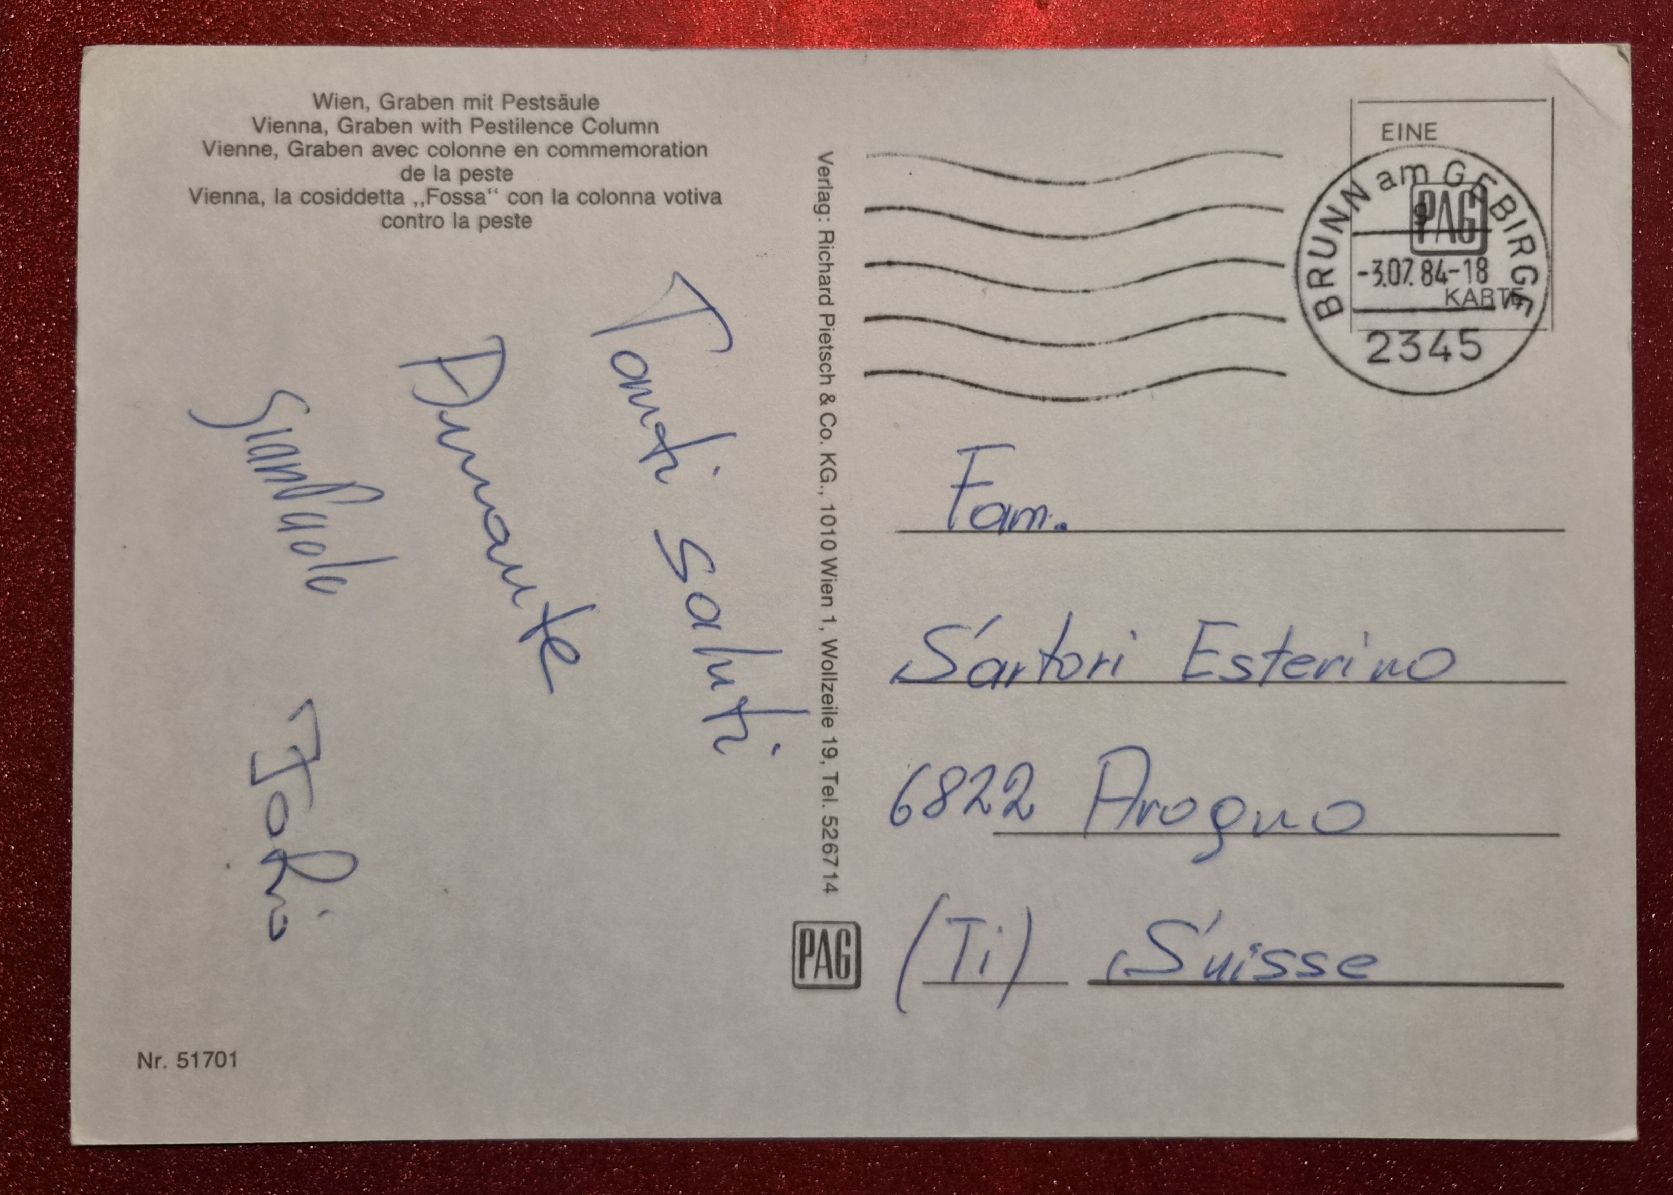 Wien, Graben mit Pestsäule
Vienna, Graben with Pestilence Column
Vienne, Graben avec colonne en commemoration
de la peste
Vienna, la cosiddetta „Fossa“ con la colonna votiva
contro la peste
Tanti saluti
GianPaolo
Verlag: Richard Pietsch & Co. KG., 1010 Wien 1, Wollzeile 19, Tel. 526714
PAG
EINE
PAG
KARTE
BRUNN am GEBIRGE
-3.07.84-18
2345
Fam.
Sartori Esterino
6822 Arogno
(Ti) Suisse
Nr. 51701